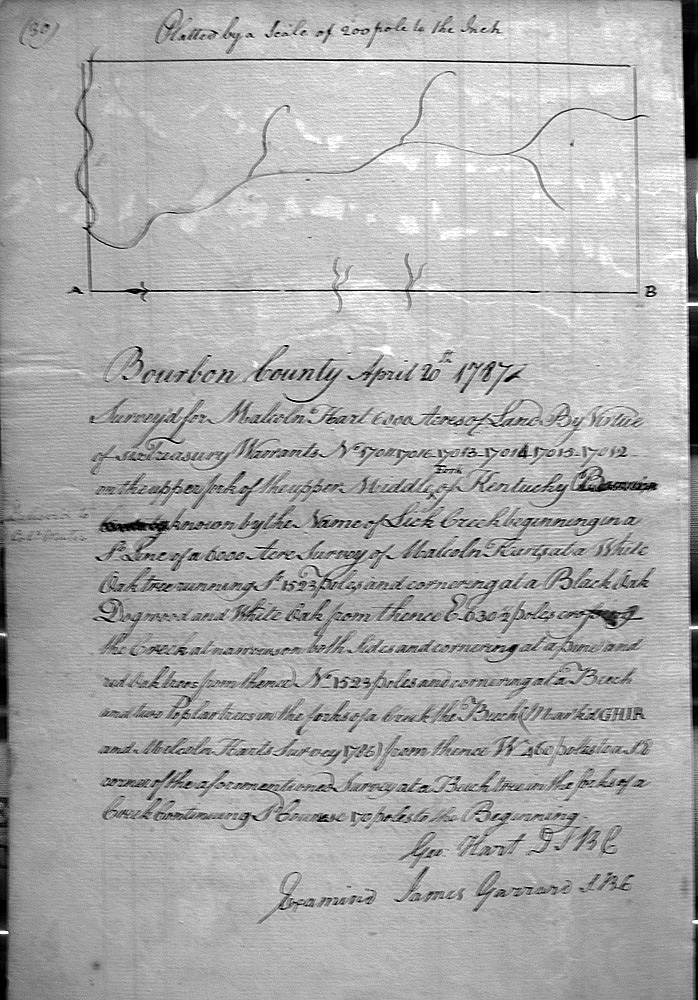 (30)
Platted by a Scale of 200 pole to the Inch
A
B
Bourbon County April 20th 1787
Survey'd for Malcolm Hart 6000 Acres of Land By Virtue
of six Treasury Warrants No 17011 17016 17013-17014 17015-17012
on the upper fork of the upper Middle Fork of Kentucky
known by the Name of Lick Creek beginning in a
So Line of a 6000 Acre Survey of Malcolm Harts at a White
Oak tree running So 1523 poles and cornering at a Black Oak
Dogwood and White Oak from thence E 630½ poles
the Creek at narrows on both Sides and cornering at a pine and
red Oak trees from thence No 1523 poles and cornering at a Beech
and two Poplar trees in the forks of a Creek the Beech (Markd GHIR
and Malcolm Harts Survey 1786) from thence W poles to a S E
corner of the aforementioned Survey at a Beech tree in the forks of a
Creek Continuing So Course 170 poles to the Beginning.
Geo. Hart D S B C
Examind James Garrard S B C